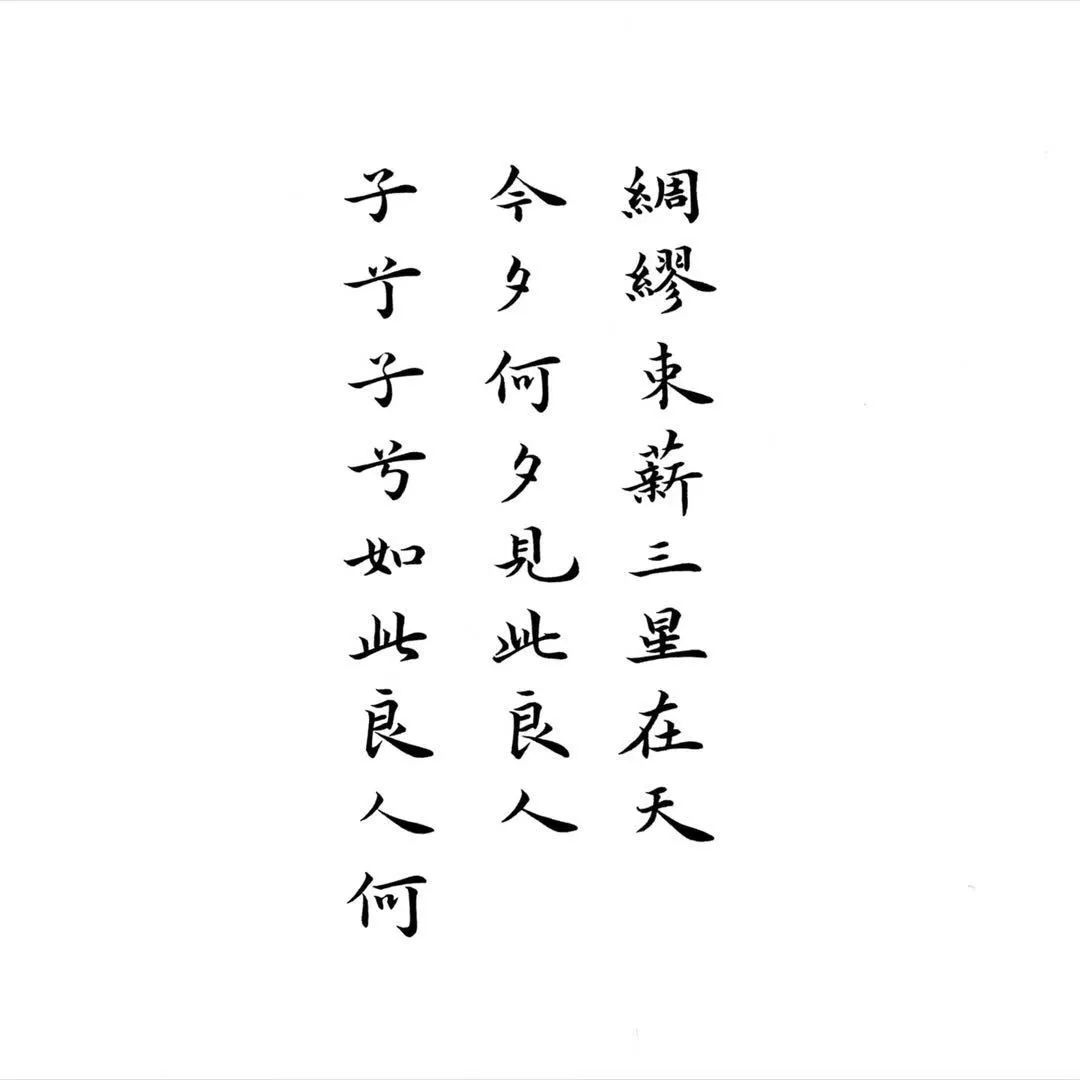 綢繆束薪三星在天
今夕何夕見此良人
子兮子兮如此良人何